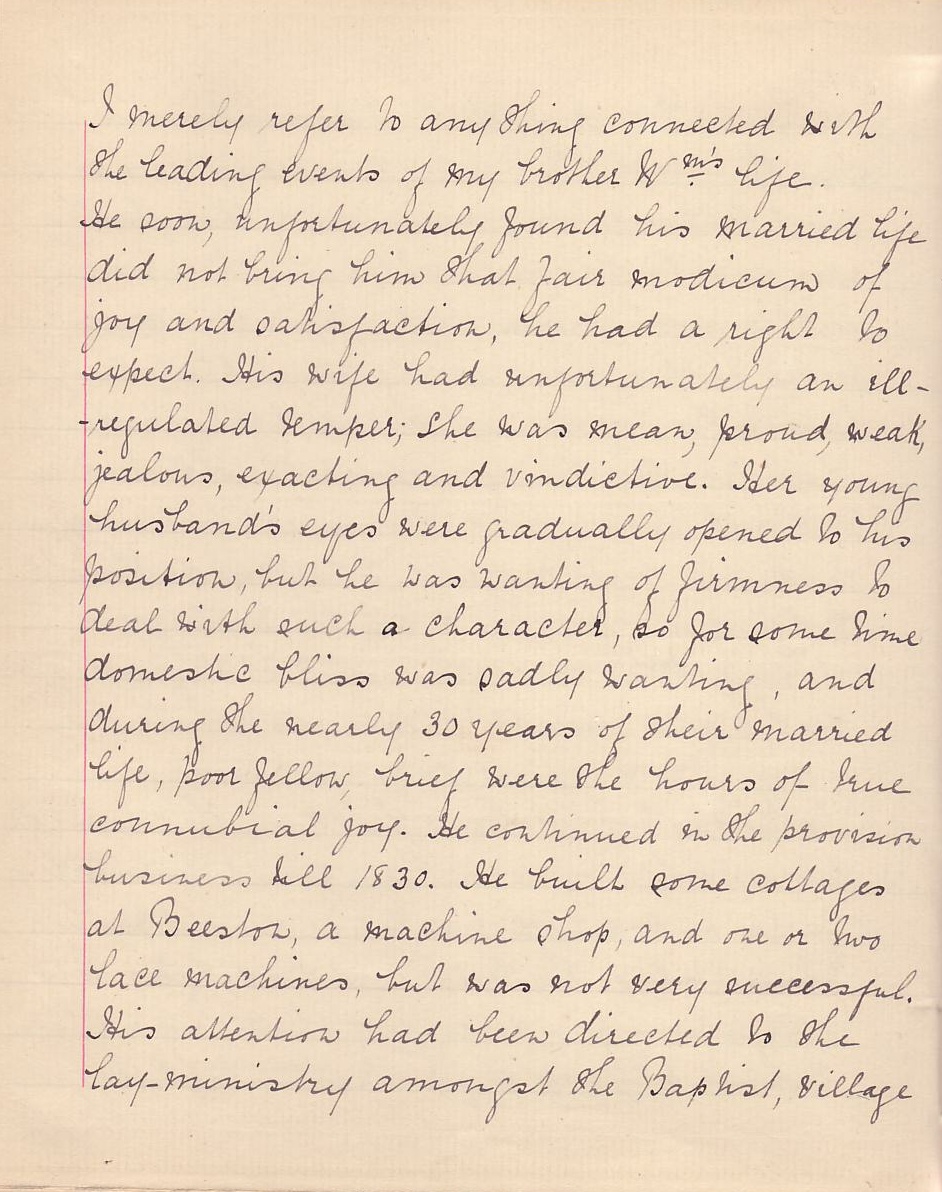 I merely refer to any thing connected with
the leading events of my brother Wm's life.
He soon, unfortunately found his married life
did not bring him that fair modicum of
joy and satisfaction, he had a right to
expect. His wife had unfortunately an ill-
-regulated temper; she was mean, proud, weak,
jealous, exacting and vindictive. Her young
husband's eyes were gradually opened to his
position, but he was wanting of firmness to
deal with such a character, so for some time
domestic bliss was sadly wanting, and
during the nearly 30 years of their married
life, poor fellow, brief were the hours of true
connubial joy. He continued in the provision
business till 1830. He built some cottages
at Beeston, a machine shop, and one or two
lace machines, but was not very successful.
His attention had been directed to the
lay-ministry amongst the Baptist, village